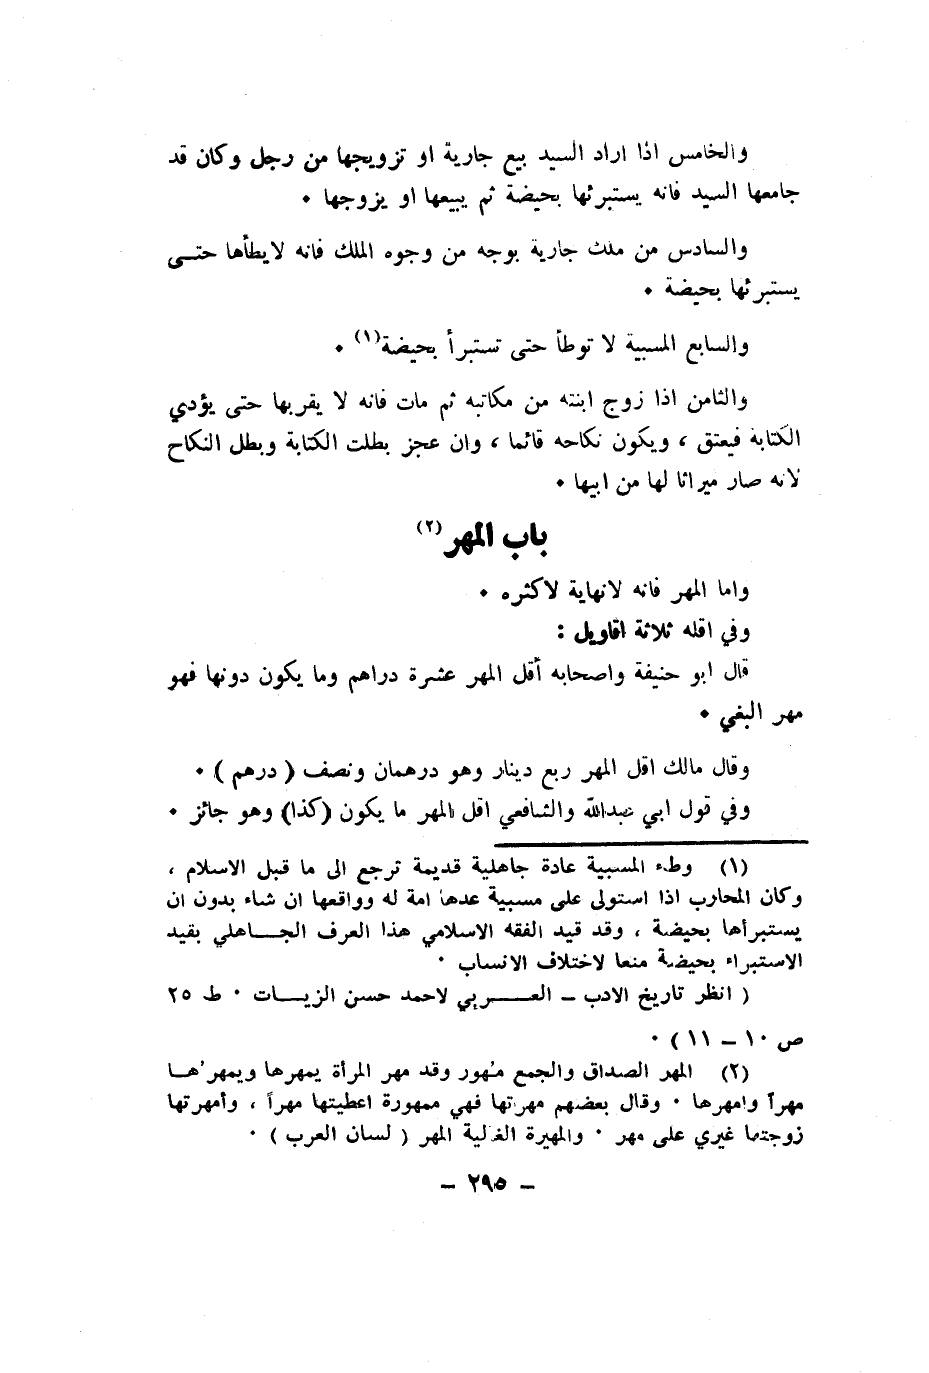 والخامس اذا اراد السيد بيع جارية او تزويجها من رجل وكان قد
جامعها السيد فانه يستبرئها بحيضة ثم يبيعها او يزوجها ٠
والسادس من ملك جارية بوجه من وجوه الملك فانه لايطأها حتــى
يستبرئها بحيضة ٠
والسابع المسبية لا توطأ حتى تستبرأ بحيضة(١) ٠
والثامن اذا زوج ابنته من مكاتبه ثم مات فانه لا يقربها حتى يؤدي
الكتابة فيعتق ، ويكون نكاحه قائما ، وان عجز بطلت الكتابة وبطل النكاح
لانه صار ميراثا لها من ابيها ٠
باب المهر(٢)
واما المهر فانه لانهاية لاكثره ٠
وفي اقله ثلاثة اقاويل :
قال ابو حنيفة واصحابه أقل المهر عشرة دراهم وما يكون دونها فهو
مهر البغي ٠
وقال مالك اقل المهر ربع دينار وهو درهمان ونصف ( درهم ) ٠
وفي قول ابي عبدالله والشافعي اقل المهر ما يكون (كذا) وهو جائز ٠
(١) وطء المسبية عادة جاهلية قديمة ترجع الى ما قبل الاسلام ،
وكان المحارب اذا استولى على مسبية عدها امة له وواقعها ان شاء بدون ان
يستبرأها بحيضة ، وقد قيد الفقه الاسلامي هذا العرف الجــاهلي بقيد
الاستبراء بحيضة منعا لاختلاف الانساب ٠
( انظر تاريخ الادب ــ العــــربي لاحمد حسن الزيــات ٠ ط ٢٥
ص ١٠ ــ ١١ ) ٠
(٢) المهر الصداق والجمع مهور وقد مهر المرأة يمهرها ويمهرهــا
مهرآ وامهرها ٠ وقال بعضهم مهرتها فهي ممهورة اعطيتها مهرآ ، وأمهرتها
زوجتها غيري على مهر ٠ والمهيرة الغالية المهر ( لسان العرب ) ٠
ــ ٢٩٥ ــ